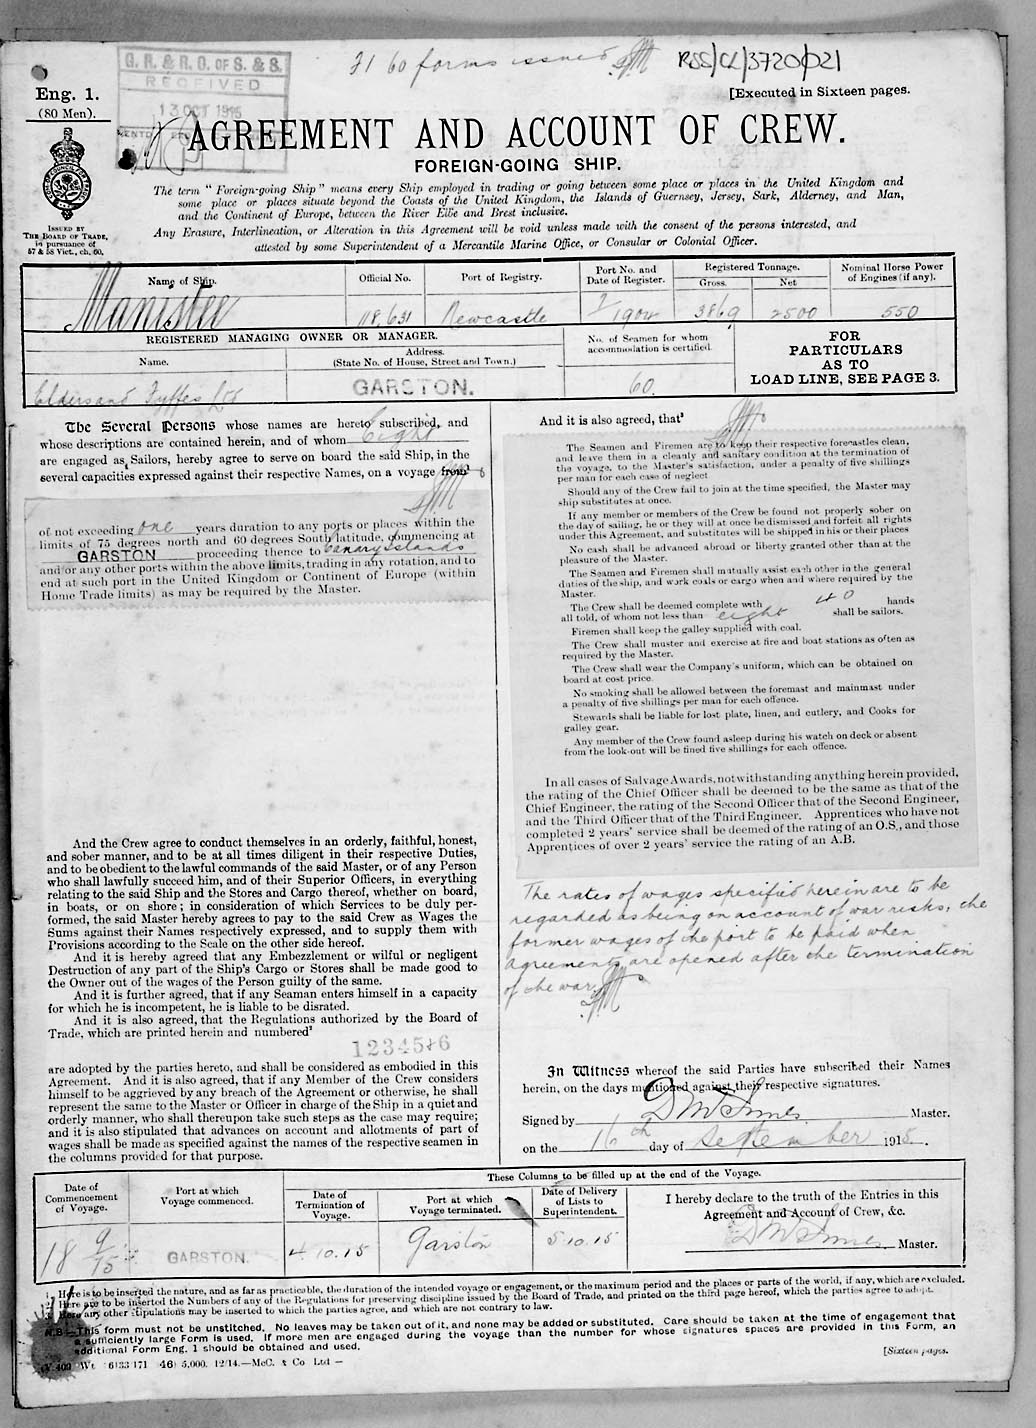 G. R. & R. O. OF S. & S.
RECEIVED
13 OCT 1915
21 60 forms issued
RSS/CL/3720/021
Eng. 1.
(80 Men).
[Executed in Sixteen pages.
AGREEMENT AND ACCOUNT OF CREW.
FOREIGN-GOING SHIP.
ISSUED BY
THE BOARD OF TRADE,
in pursuance of
57 & 58 Vict., ch. 60.
The term "Foreign-going Ship" means every Ship employed in trading or going between some place or places in the United Kingdom and
some place or places situate beyond the Coasts of the United Kingdom, the Islands of Guernsey, Jersey, Sark, Alderney, and Man,
and the Continent of Europe, between the River Elbe and Brest inclusive.
Any Erasure, Interlineation, or Alteration in this Agreement will be void unless made with the consent of the persons interested, and
attested by some Superintendent of a Mercantile Marine Office, or Consular or Colonial Officer.
Name of Ship. Official No. Port of Registry. Port No. and Date of Register. Registered Tonnage. Gross. Net Nominal Horse Power of Engines (if any).
Manistee 118,631 Newcastle 1904 3869 2500 550
REGISTERED MANAGING OWNER OR MANAGER.
Name. Address. (State No. of House, Street and Town.)
No. of Seamen for whom accommodation is certified.
FOR
PARTICULARS
AS TO
LOAD LINE, SEE PAGE 3.
Elders and Fyffes Ltd GARSTON. 60.
The Several Persons whose names are hereto subscribed, and
whose descriptions are contained herein, and of whom Eight
are engaged as Sailors, hereby agree to serve on board the said Ship, in the
several capacities expressed against their respective Names, on a voyage from¹
of not exceeding one years duration to any ports or places within the
limits of 75 degrees north and 60 degrees South latitude, commencing at
GARSTON proceeding thence to Canary Islands
and/or any other ports within the above limits, trading in any rotation, and to
end at such port in the United Kingdom or Continent of Europe (within
Home Trade limits) as may be required by the Master.
And the Crew agree to conduct themselves in an orderly, faithful, honest,
and sober manner, and to be at all times diligent in their respective Duties,
and to be obedient to the lawful commands of the said Master, or of any Person
who shall lawfully succeed him, and of their Superior Officers, in everything
relating to the said Ship and the Stores and Cargo thereof, whether on board,
in boats, or on shore; in consideration of which Services to be duly per-
formed, the said Master hereby agrees to pay to the said Crew as Wages the
Sums against their Names respectively expressed, and to supply them with
Provisions according to the Scale on the other side hereof.
And it is hereby agreed that any Embezzlement or wilful or negligent
Destruction of any part of the Ship's Cargo or Stores shall be made good to
the Owner out of the wages of the Person guilty of the same.
And it is further agreed, that if any Seaman enters himself in a capacity
for which he is incompetent, he is liable to be disrated.
And it is also agreed, that the Regulations authorized by the Board of
Trade, which are printed herein and numbered²
12345+6
are adopted by the parties hereto, and shall be considered as embodied in this
Agreement. And it is also agreed, that if any Member of the Crew considers
himself to be aggrieved by any breach of the Agreement or otherwise, he shall
represent the same to the Master or Officer in charge of the Ship in a quiet and
orderly manner, who shall thereupon take such steps as the case may require;
and it is also stipulated that advances on account and allotments of part of
wages shall be made as specified against the names of the respective seamen in
the columns provided for that purpose.
And it is also agreed, that³
The Seamen and Firemen are to keep their respective forecastles clean,
and leave them in a cleanly and sanitary condition at the termination of
the voyage, to the Master's satisfaction, under a penalty of five shillings
per man for each case of neglect
Should any of the Crew fail to join at the time specified, the Master may
ship substitutes at once.
If any member or members of the Crew be found not properly sober on
the day of sailing, he or they will at once be dismissed and forfeit all rights
under this Agreement, and substitutes will be shipped in his or their places
No cash shall be advanced abroad or liberty granted other than at the
pleasure of the Master.
The Seamen and Firemen shall mutually assist each other in the general
duties of the ship, and work coals or cargo when and where required by the
Master.
The Crew shall be deemed complete with 40 hands
all told, of whom not less than eight shall be sailors.
Firemen shall keep the galley supplied with coal.
The Crew shall muster and exercise at fire and boat stations as often as
required by the Master.
The Crew shall wear the Company's uniform, which can be obtained on
board at cost price.
No smoking shall be allowed between the foremast and mainmast under
a penalty of five shillings per man for each offence.
Stewards shall be liable for lost plate, linen, and cutlery, and Cooks for
galley gear.
Any member of the Crew found asleep during his watch on deck or absent
from the look-out will be fined five shillings for each offence.
In all cases of Salvage Awards, notwithstanding anything herein provided,
the rating of the Chief Officer shall be deemed to be the same as that of the
Chief Engineer, the rating of the Second Officer that of the Second Engineer,
and the Third Officer that of the Third Engineer. Apprentices who have not
completed 2 years' service shall be deemed of the rating of an O.S., and those
Apprentices of over 2 years' service the rating of an A.B.
The rates of wages specified herein are to be
regarded as being on account of war risks, the
former wages of the port to be paid when
agreements are opened after the termination
of the war.
In Witness whereof the said Parties have subscribed their Names
herein, on the days mentioned against their respective signatures.
Signed by Master.
on the 16th day of September 1915.
These Columns to be filled up at the end of the Voyage.
Date of Commencement of Voyage. Port at which Voyage commenced. Date of Termination of Voyage. Port at which Voyage terminated. Date of Delivery of Lists to Superintendent.
I hereby declare to the truth of the Entries in this
Agreement and Account of Crew, &c.
18 9/15 GARSTON. 4.10.15 Garston 5.10.15
Master.
1. Here is to be inserted the nature, and as far as practicable, the duration of the intended voyage or engagement, or the maximum period and the places or parts of the world, if any, which are excluded.
2. Here are to be inserted the Numbers of any of the Regulations for preserving discipline issued by the Board of Trade, and printed on the third page hereof, which the parties agree to adopt.
3. Here any other stipulations may be inserted to which the parties agree, and which are not contrary to law.
N.B.—This form must not be unstitched. No leaves may be taken out of it, and none may be added or substituted. Care should be taken at the time of engagement that
a sufficiently large Form is used. If more men are engaged during the voyage than the number for whose signatures spaces are provided in this Form, an
additional Form Eng. 1 should be obtained and used.
Wt 6133/171 46) 5,000. 12/14.—McC. & Co Ltd —
[Sixteen pages.